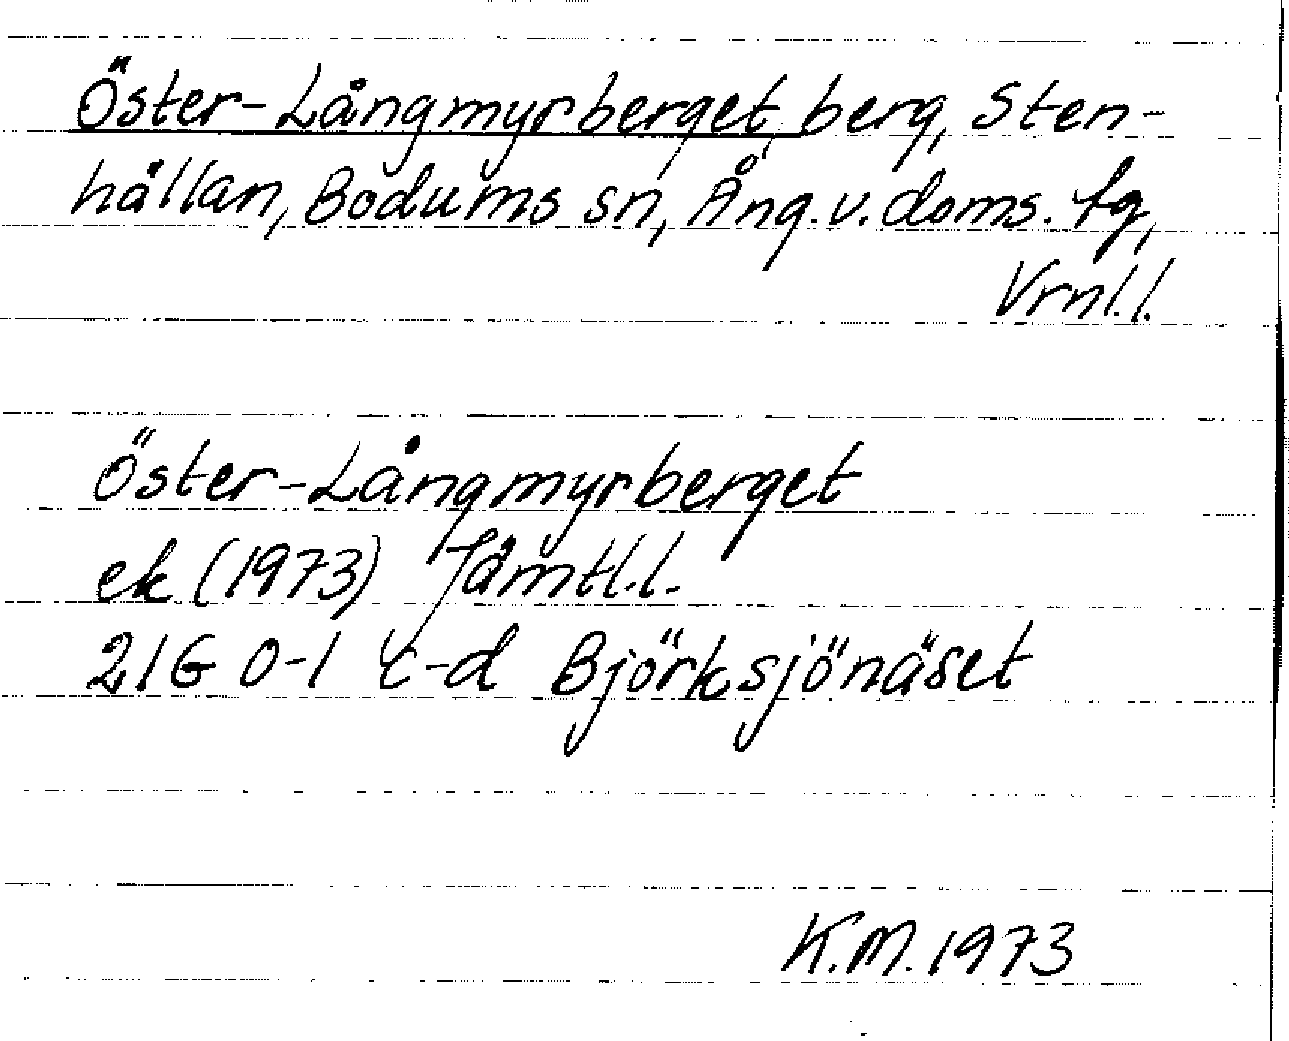 Öster-Långmyrberget, berg, Sten-
hällan, Bodums sn, Ång.v.doms. tg,
Vrnl.l.
Öster-Långmyrberget
ek (1973) Jämtl.l.
21G 0-1 c-d Björksjönäset
K.M. 1973